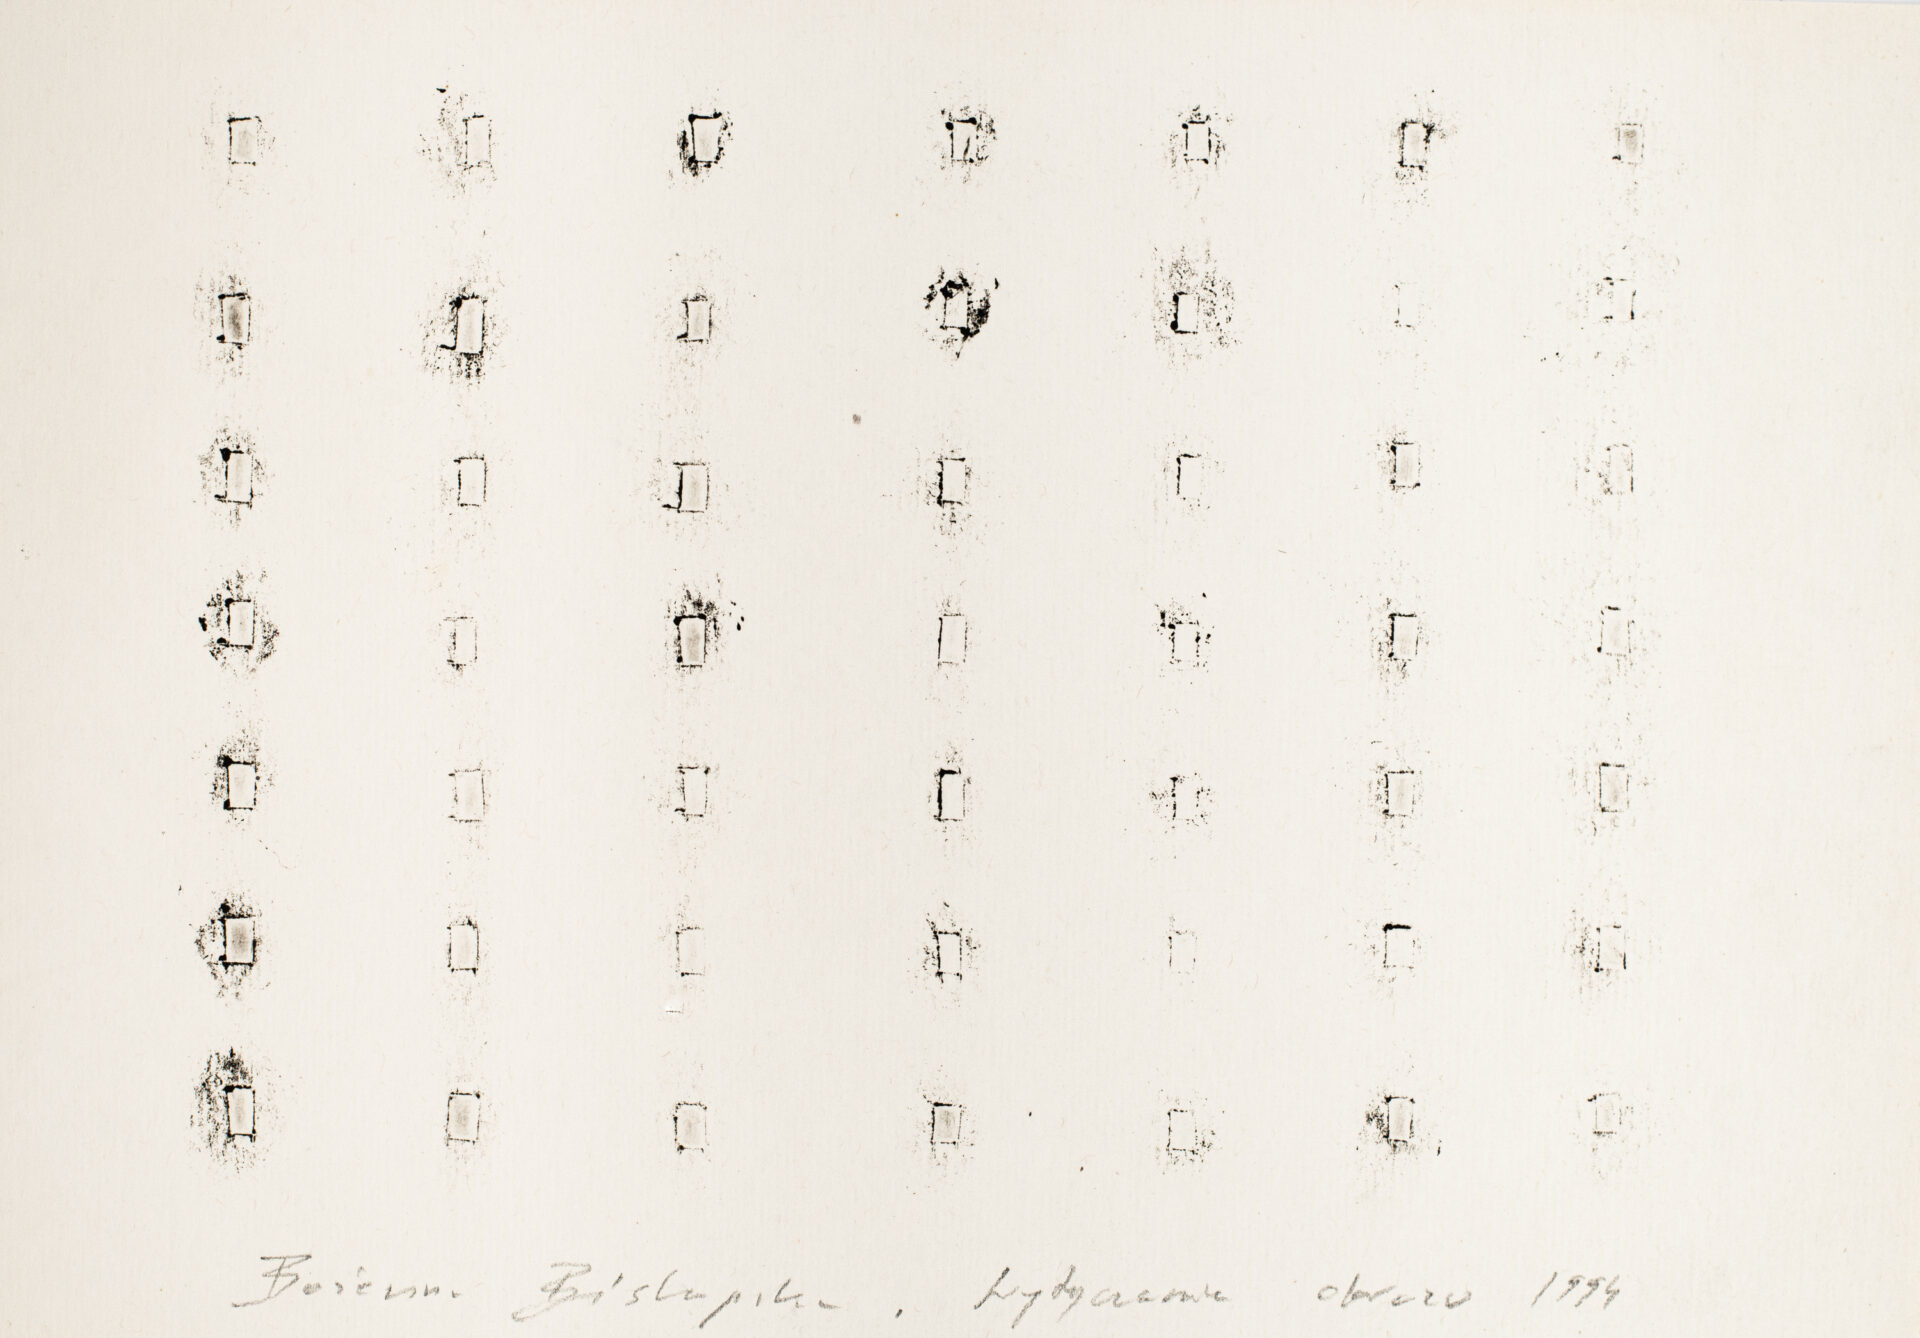 Bożenna Biskupska, wytyczanie obrazu 1994